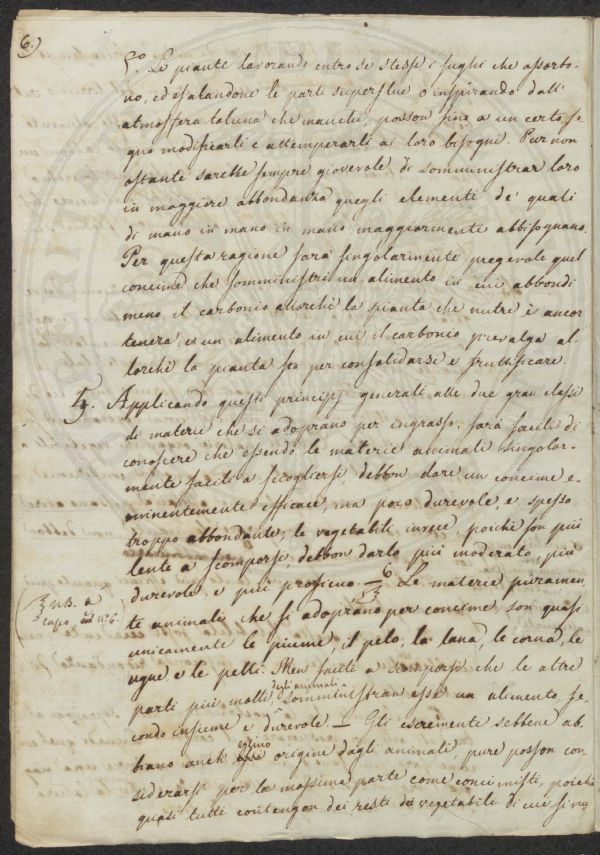 6.)
5.° Le piante lavorando entro se stesse i sughi che assorbo-
no, ed esalandone le parti superflue o inspirando dall'
atmosfera taluna che manchi, posson fino a un certo se-
gno modificarli e attemperarli ai loro bisogni. Pur non
ostante sarebbe sempre giovevole di somministrar loro
in maggiore abbondanza quegli elementi de' quali
di mano in mano in mano maggiormente abbisognano.
Per questa ragione sarà singolarmente pregevole quel
concime che somministri un alimento in cui abbondi
meno il carbonio allorchè la pianta che nutre è ancor
tenera, e un alimento in cui il carbonio prevalga al-
lorchè la pianta sta per consolidarsi e fruttificare.
5. Applicando questi principj generali alle due gran classi
di materie che si adoprano per ingrasso; sarà facile di
conoscere che essendo le materie animali singolar-
mente facili a sciogliersi debbon dare un concime e-
minentemente efficace, ma poco durevole, e spesso
troppo abbondante; le vegetabili invece, poichè son più
lente a scomporsi, debbon darlo più moderato, più
durevole e più proficuo — 6 Le materie puramen-
NB. a
capo, al n.° 6.
te animali che si adoprano per concime, son quasi
unicamente le piume, il pelo, la lana, le corna, le
ugne e le pelli. Men facili a scomporsi che le altre
parti più molli degli animali somministran esse un alimento fe-
condo insieme e durevole — Gli escrementi sebbene ab-
biano anch' essino origine dagli animali, pure posson con-
siderarsi per la massima parte come concimi misti, poichè
quasi tutti contengon dei resti dei vegetabili di cui si nu-